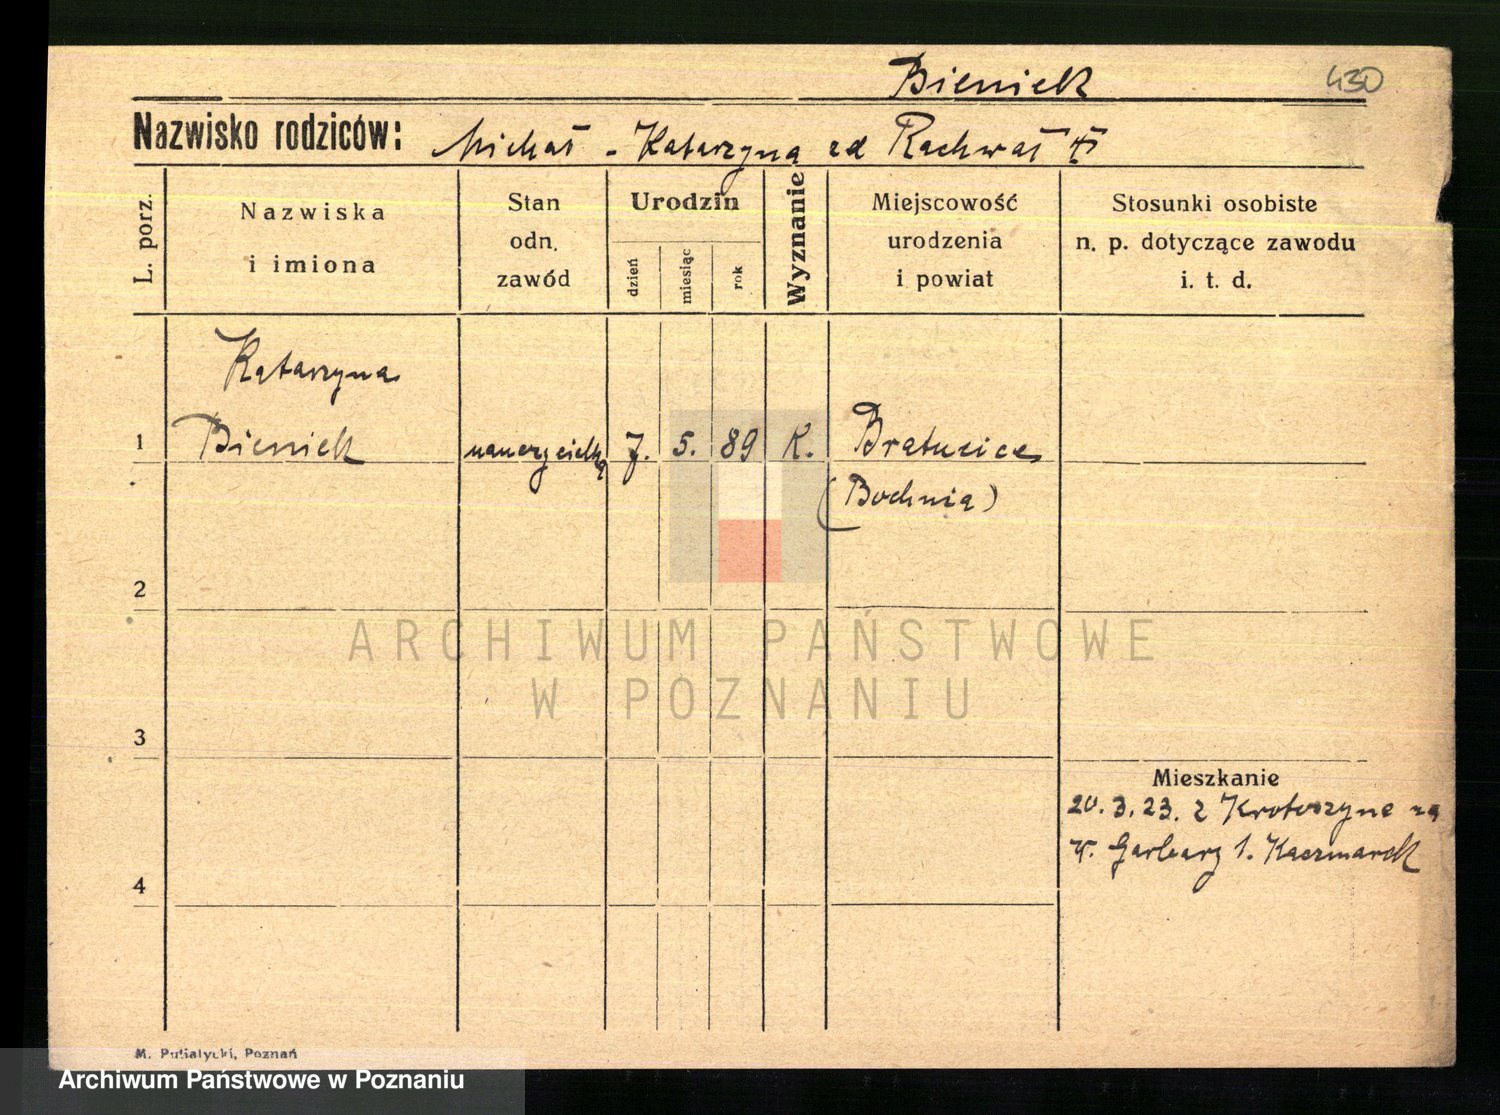 Bieniek 430
Nazwisko rodziców: Michał - Katarzyna zd Rachwał
L. porz.
Nazwiska
i imiona
Stan
odn.
zawód
Urodzin
dzień
miesiąc
rok
Wyznanie
Miejscowość
urodzenia
i powiat
Stosunki osobiste
n. p. dotyczące zawodu
i. t. d.
Katarzyna
1 Bieniek nauczycielka 7. 5. 89 K. Bratucice
(Bochnia)
2
ARCHIWUM PAŃSTWOWE
W POZNANIU
3
Mieszkanie
20. 3. 23. z Krotoszyna na
Garbary 1. Kaczmarek
4
M. Putiatycki, Poznań
Archiwum Państwowe w Poznaniu